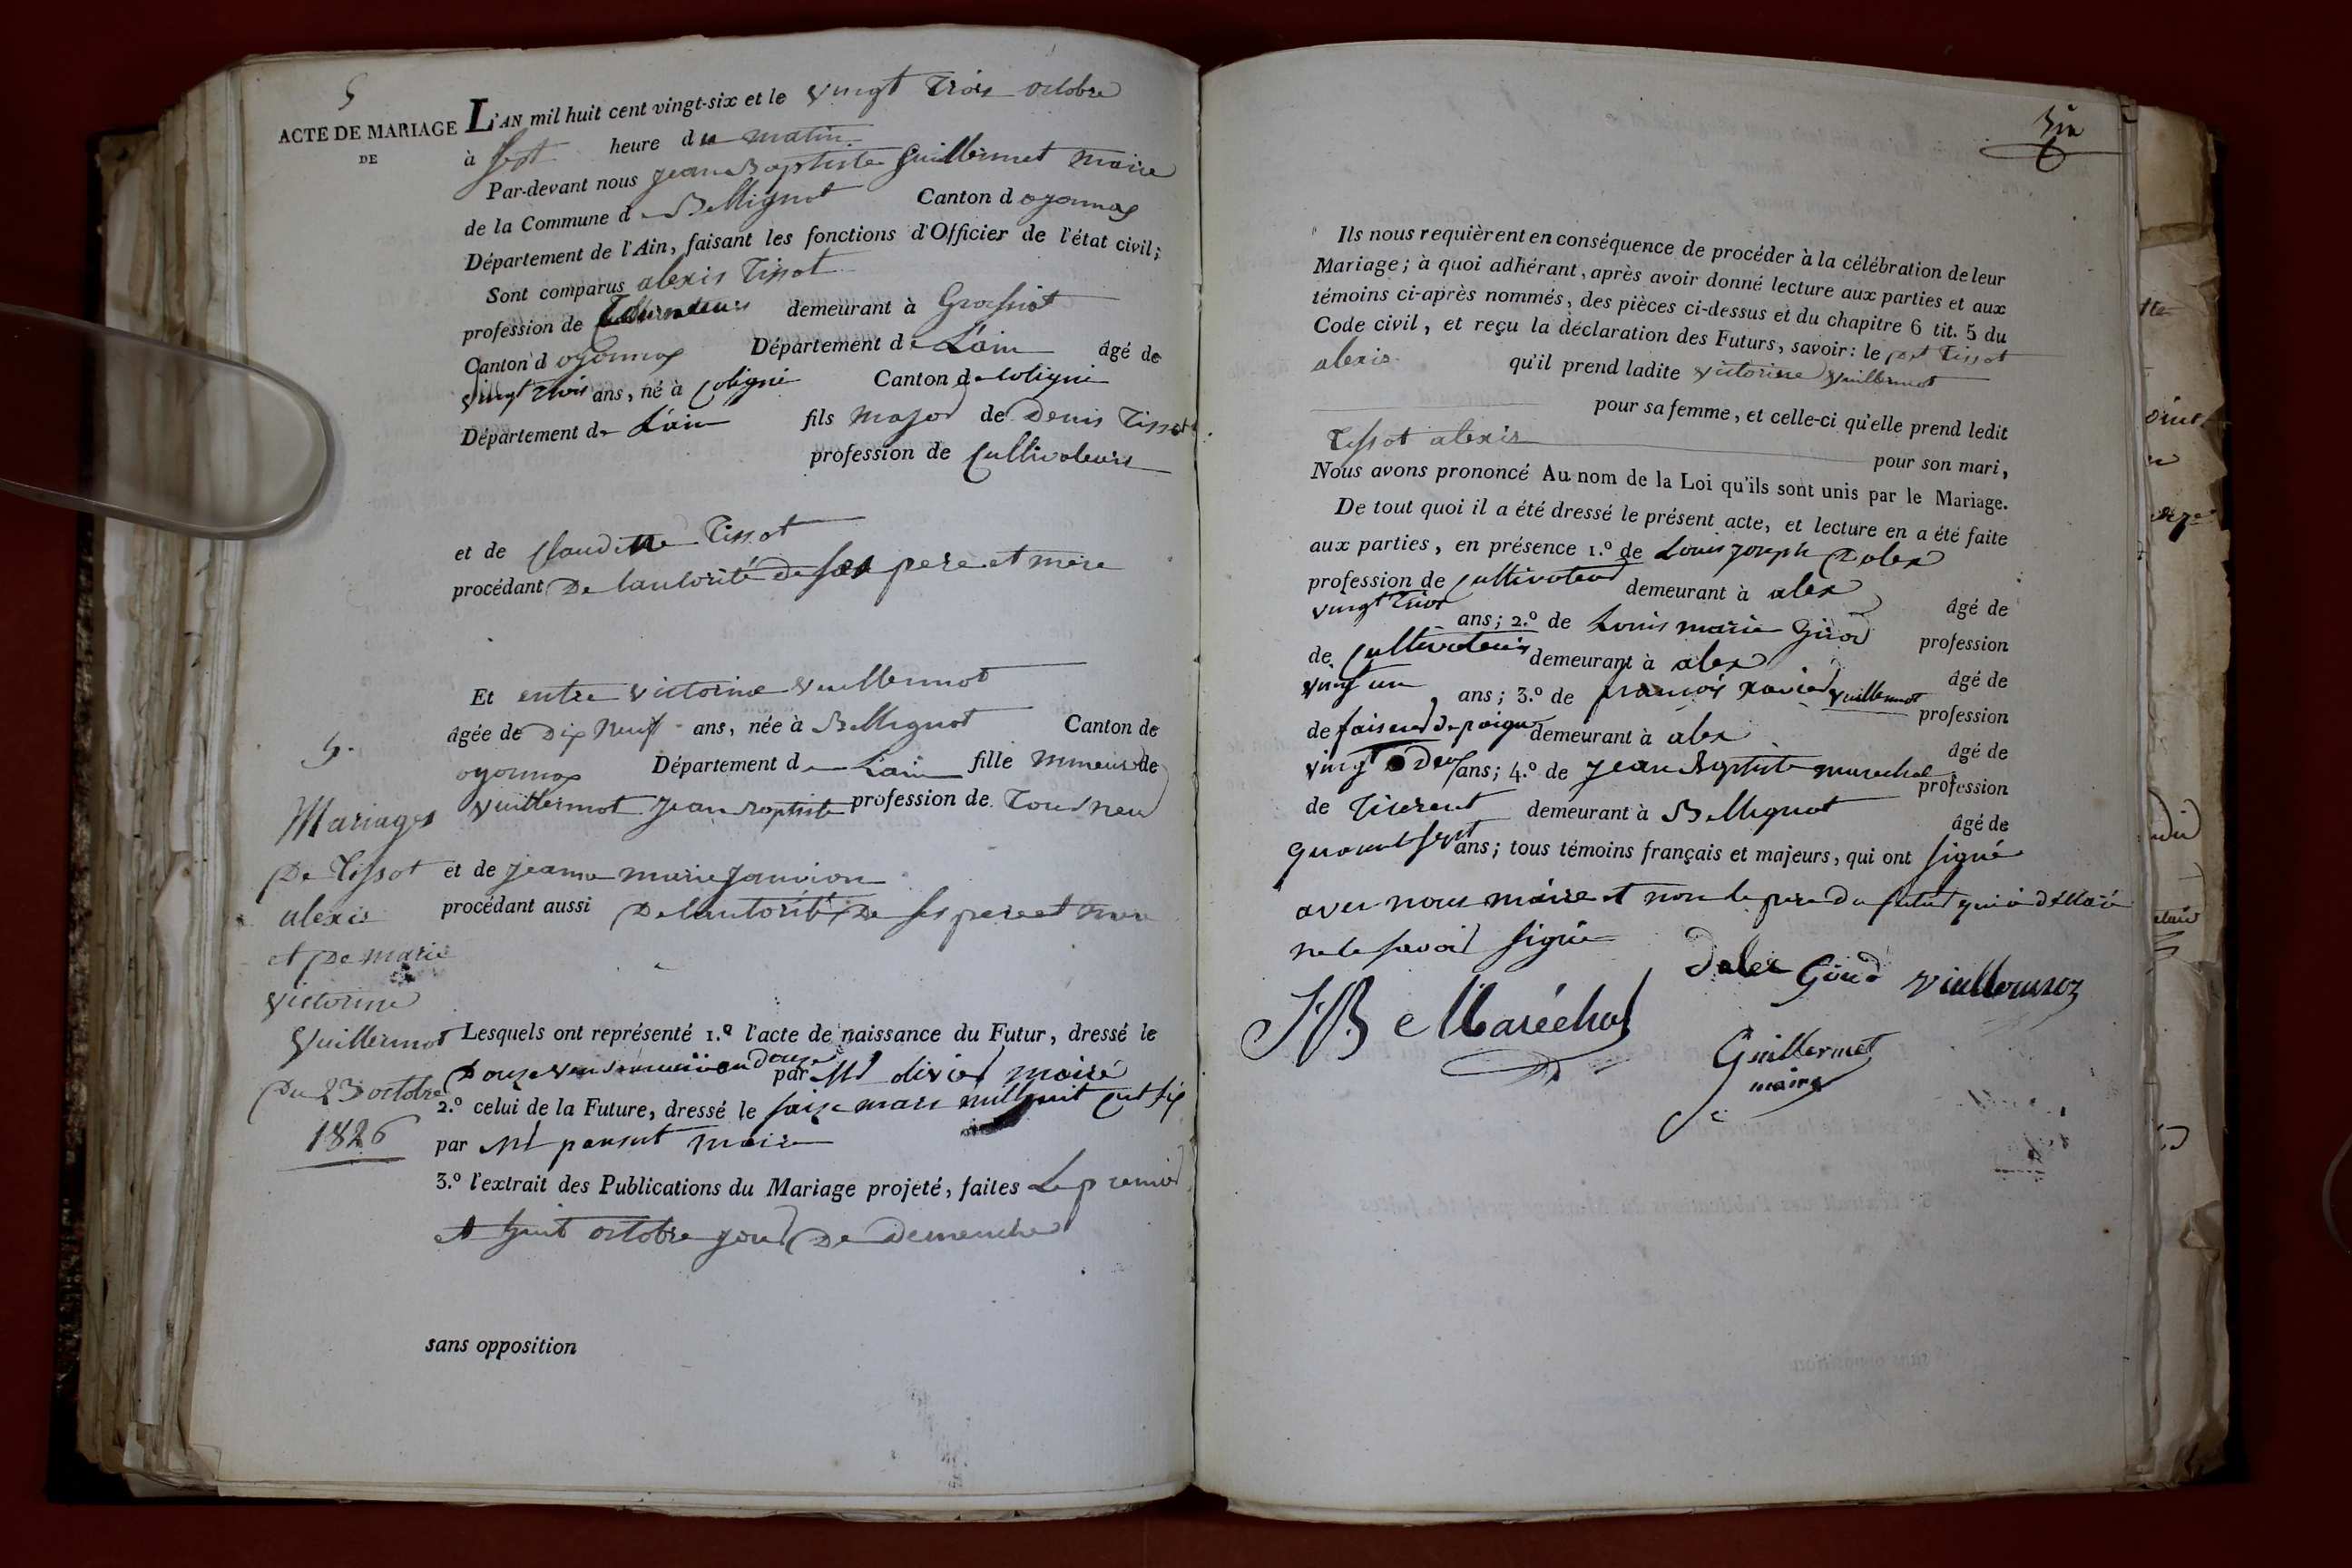 5
ACTE DE MARIAGE
DE
L'AN mil huit cent vingt-six et le vingt trois octobre
à sept heure du matin
Par-devant nous jean Baptiste Guillermet maire
de la Commune de Bellignat Canton d oyonnax
Département de l'Ain, faisant les fonctions d'Officier de l'état civil;
Sont comparus alexis Tissot
profession de demeurant à Groissiat
Canton d oyonnax Département de L'ain âgé de
vingt trois ans, né à Coligni Canton de Coligni
Département de L'ain fils major de Denis Tissot
profession de Cultivateur
et de Claudine Tissot
procédant De lautorité de ses pere et mere
Et entre victorine vuillermot
âgée de Dix Neuf ans, née à Bellignat Canton de
oyonnax Département de L'ain fille mineur de
vuillermot jean Baptiste profession de Tourneur
et de jeanne marie
procédant aussi De lautorité De ses pere et mere
5.
Mariages
De Tissot
alexis
et De marie
victorine
Vuillermot
Du 23 octobre
1826
Lesquels ont représenté 1.º l'acte de naissance du Futur, dressé le
Douze vendemiaire an Douze par Mr maire
2.º celui de la Future, dressé le saize mars mil huit cent six
par Mr maire
3.º l'extrait des Publications du Mariage projeté, faites Le premier
et huit octobre jour De demenche
sans opposition
six
Ils nous requièrent en conséquence de procéder à la célébration de leur
Mariage; à quoi adhérant, après avoir donné lecture aux parties et aux
témoins ci-après nommés, des pièces ci-dessus et du chapitre 6 tit. 5 du
Code civil, et reçu la déclaration des Futurs, savoir: le dit Tissot
alexis qu'il prend ladite victorine vuillermot
pour sa femme, et celle-ci qu'elle prend ledit
Tissot alexis pour son mari,
Nous avons prononcé Au nom de la Loi qu'ils sont unis par le Mariage.
De tout quoi il a été dressé le présent acte, et lecture en a été faite
aux parties, en présence 1.º de Louis joseph Dalex
profession de cultivateur demeurant à alex âgé de
vingt trois ans; 2.º de Louis marie Girod profession
de cultivateur demeurant à alex âgé de
vingt un ans; 3.º de françois xavier vuillermot profession
de faiseur de peigne demeurant à alex âgé de
vingt deux ans; 4.º de jean Baptiste marechal profession
de Tiserent demeurant à Bellignat âgé de
quarante sept ans; tous témoins français et majeurs, qui ont signé
avec nous maire et non le pere du futur qui a déclaré
ne le savoir signé
Dalex Girod
JB Maréchal
Guillermet
maire